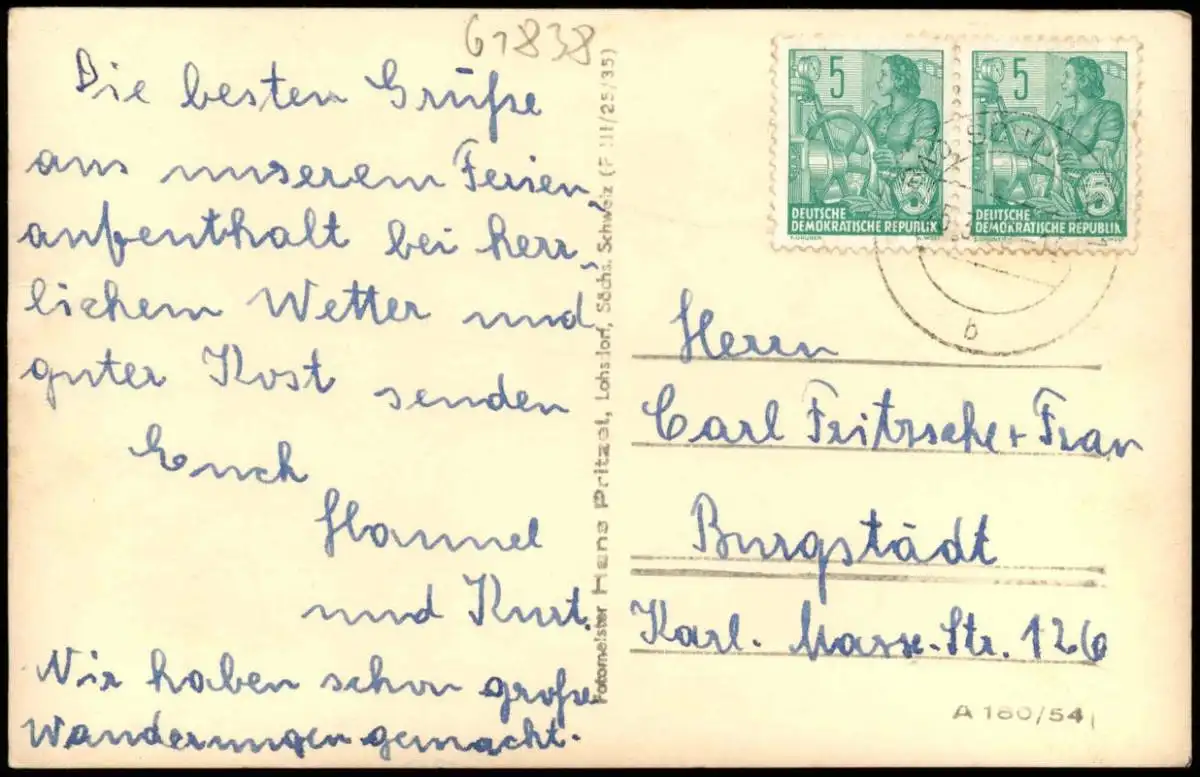 61838
Die besten Grüße
aus unserem Ferien,
aufenthalt bei herr,
lichem Wetter und
guter Kost senden
Euch
Hannel
und Kurt.
Wir haben schon große
Wanderungen gemacht.
Fotomeister Hans Pritzel, Lohsdorf, Sächs. Schweiz (F III/25/35)
5
DEUTSCHE
DEMOKRATISCHE REPUBLIK
5
5
DEUTSCHE
DEMOKRATISCHE REPUBLIK
5
b
Herrn
Carl Fritzsche + Frau
Burgstädt
Karl.-Marx-Str. 126
A 180/54